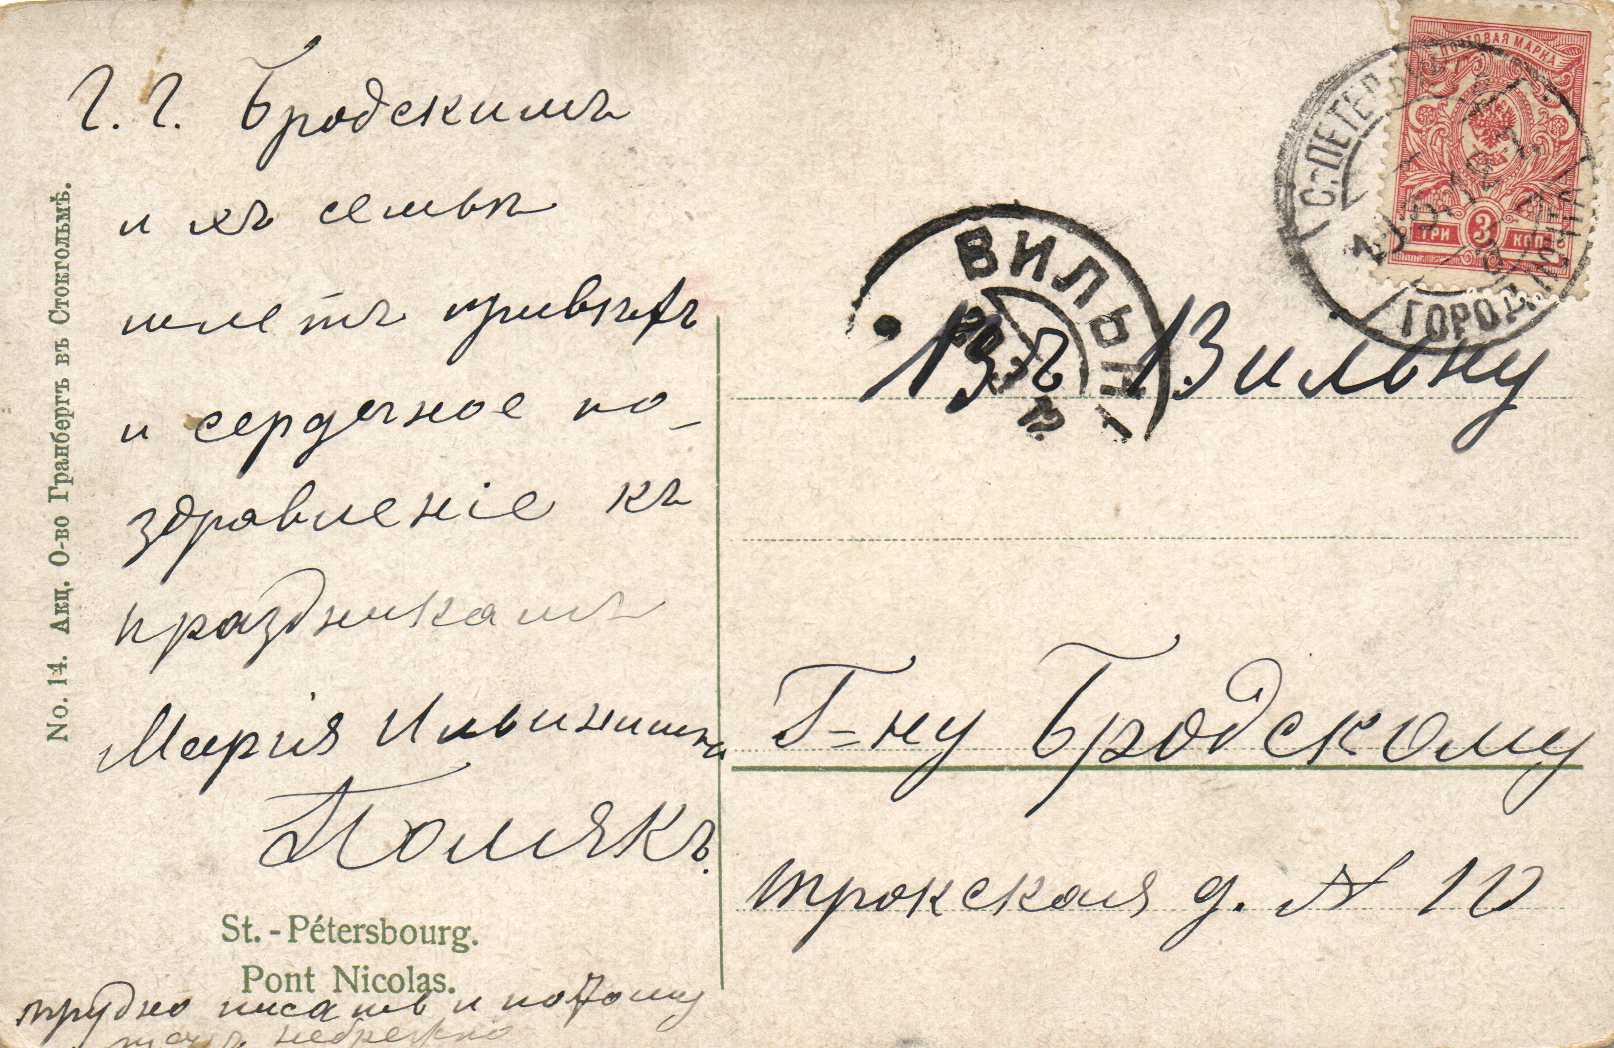 Г. Г. Бродскимъ
и ихъ семьѣ
шлетъ привѣтъ
и сердечное по-
здравленіе къ
праздникамъ
Марія Ильинишна
Полякъ.
трудно писать и потому
такъ небрежно
St.-Pétersbourg.
Pont Nicolas.
No. 14. Акц. О-во Гранбергъ въ Стокгольмѣ.
ПОЧТОВАЯ МАРКА
ТРИ 3 КОП.
С.ПЕТЕРБУРГ
ГОРОД.
ВИЛЬН
Въ Вильну
Г-ну Бродскому
трокская д. № 10